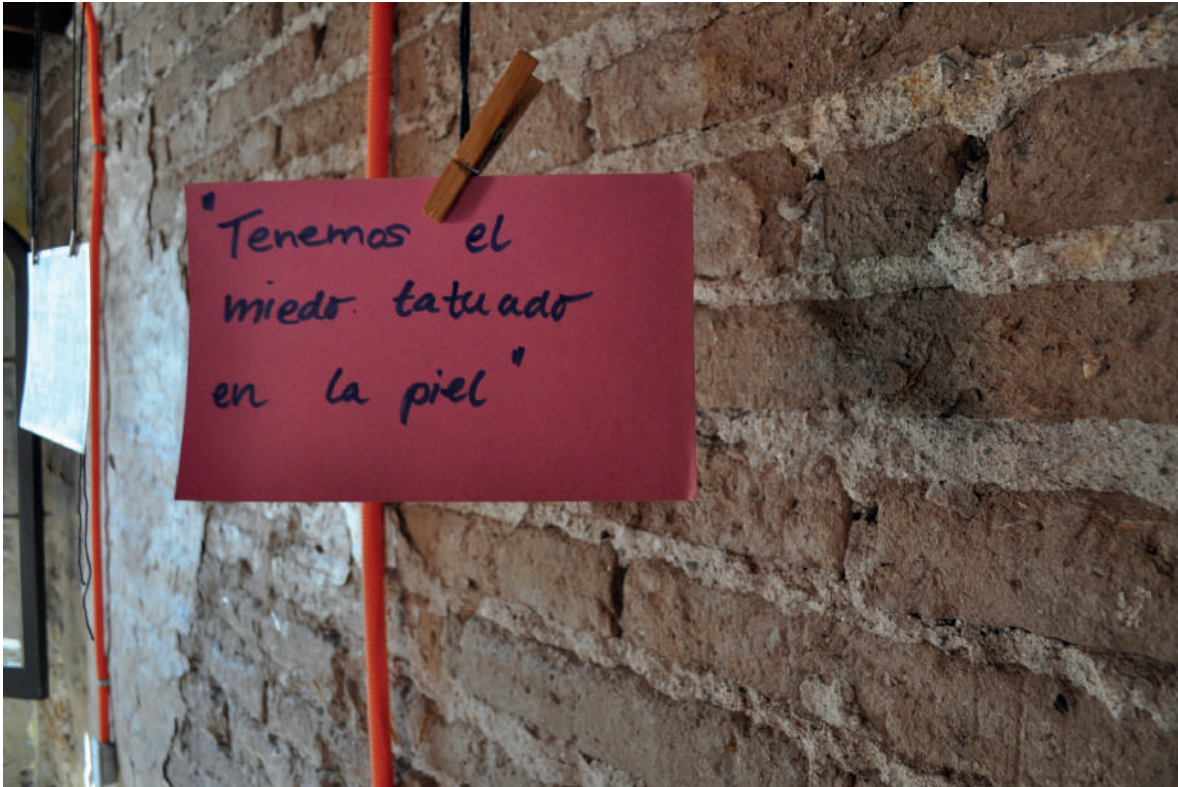 "Tenemos el
miedo tatuado
en la piel"